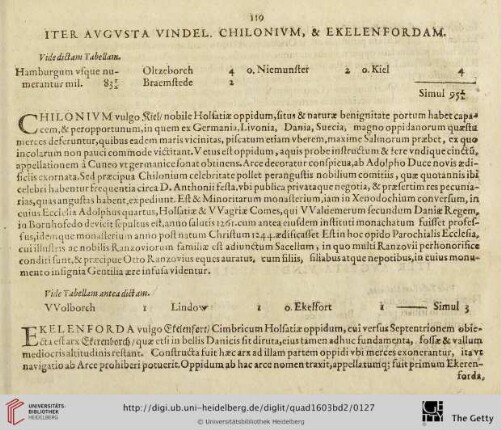 119
ITER AVGVSTA VINDEL. CHILONIVM, & EKELENFORDAM.
Vide dictam Tabellam.
Hamburgum vsque nu- Oltzeborch 4 o. Niemunster 2 o. Kiel 4
merantur mil. Braemstede 2
Simul
CHILONIVM vulgo Kiel/ nobile Holsatiæ oppidum, situs & naturæ benignitate portum habet capa-
cem, & peropportunum, in quem ex Germania, Livonia, Dania, Suecia, magno oppidanorum quæstu
merces deferuntur, quibus eadem maris vicinitas, piscatum etiam vberem, maxime Salmorum præbet, ex quo
incolarum non pauci commode victitant. Vetus est oppidum, aquis probe instructum & fere vndique cinctū,
appellationem à Cuneo vt germanice sonat obtinens. Arce decoratur conspicua, ab Adolpho Duce novis ædi-
ficiis exornata. Sed præcipua Chilonium celebritate pollet perangustis nobilium comitiis, quæ quotannis ibi
celebri habentur frequentia circa D. Anthonii festa, vbi publica privataque negotia, & præsertim res pecunia-
rias, quas angustas habent, expediunt. Est & Minoritarum monasterium, iam in Xenodochium conversum, in
cuius Ecclesia Adolphus quartus, Holsatiæ & VVagriæ Comes, qui VValdemerum secundum Daniæ Regem,
in Bornhofedo devicit sepultus est, anno salutis 1261. cum antea eiusdem instituti monachatum fuisset profes-
sus, idemque monasterium anno post natum Christum 1244. ædificasset Est in hoc opido Parochialis Ecclesia,
cui illustris ac nobilis Ranzoviorum familiæ est adiunctum Sacellum, in quo multi Ranzovii perhonorifice
conditi sunt, & præcipue Otto Ranzovius eques auratus, cum filiis, filiabus atque nepotibus, in cuius monu-
mento insignia Gentilia ære infusa videntur.
Vide Tabellam antea dictam.
VVolborch 1 Lindow 1 o. Ekelfort 1 Simul 3
EKELENFORDA vulgo Ekelenfort/ Cimbricum Holsatiæ oppidum, cui versus Septentrionem obie-
cta est arx Ekerenberch/ quæ etsi in bellis Danicis sit diruta, eius tamen adhuc fundamenta, fossæ & vallum
mediocris altitudinis restant. Constructa fuit hæc arx ad illam partem oppidi vbi merces exonerantur, ita vt
navigatio ab Arce prohiberi potuerit. Oppidum ab hac arce nomen traxit, appellatumq; fuit primum Ekeren-
forda,
UNIVERSITÄTS-
BIBLIOTHEK
HEIDELBERG
http://digi.ub.uni-heidelberg.de/diglit/quad1603bd2/0127
© Universitätsbibliothek Heidelberg
The Getty